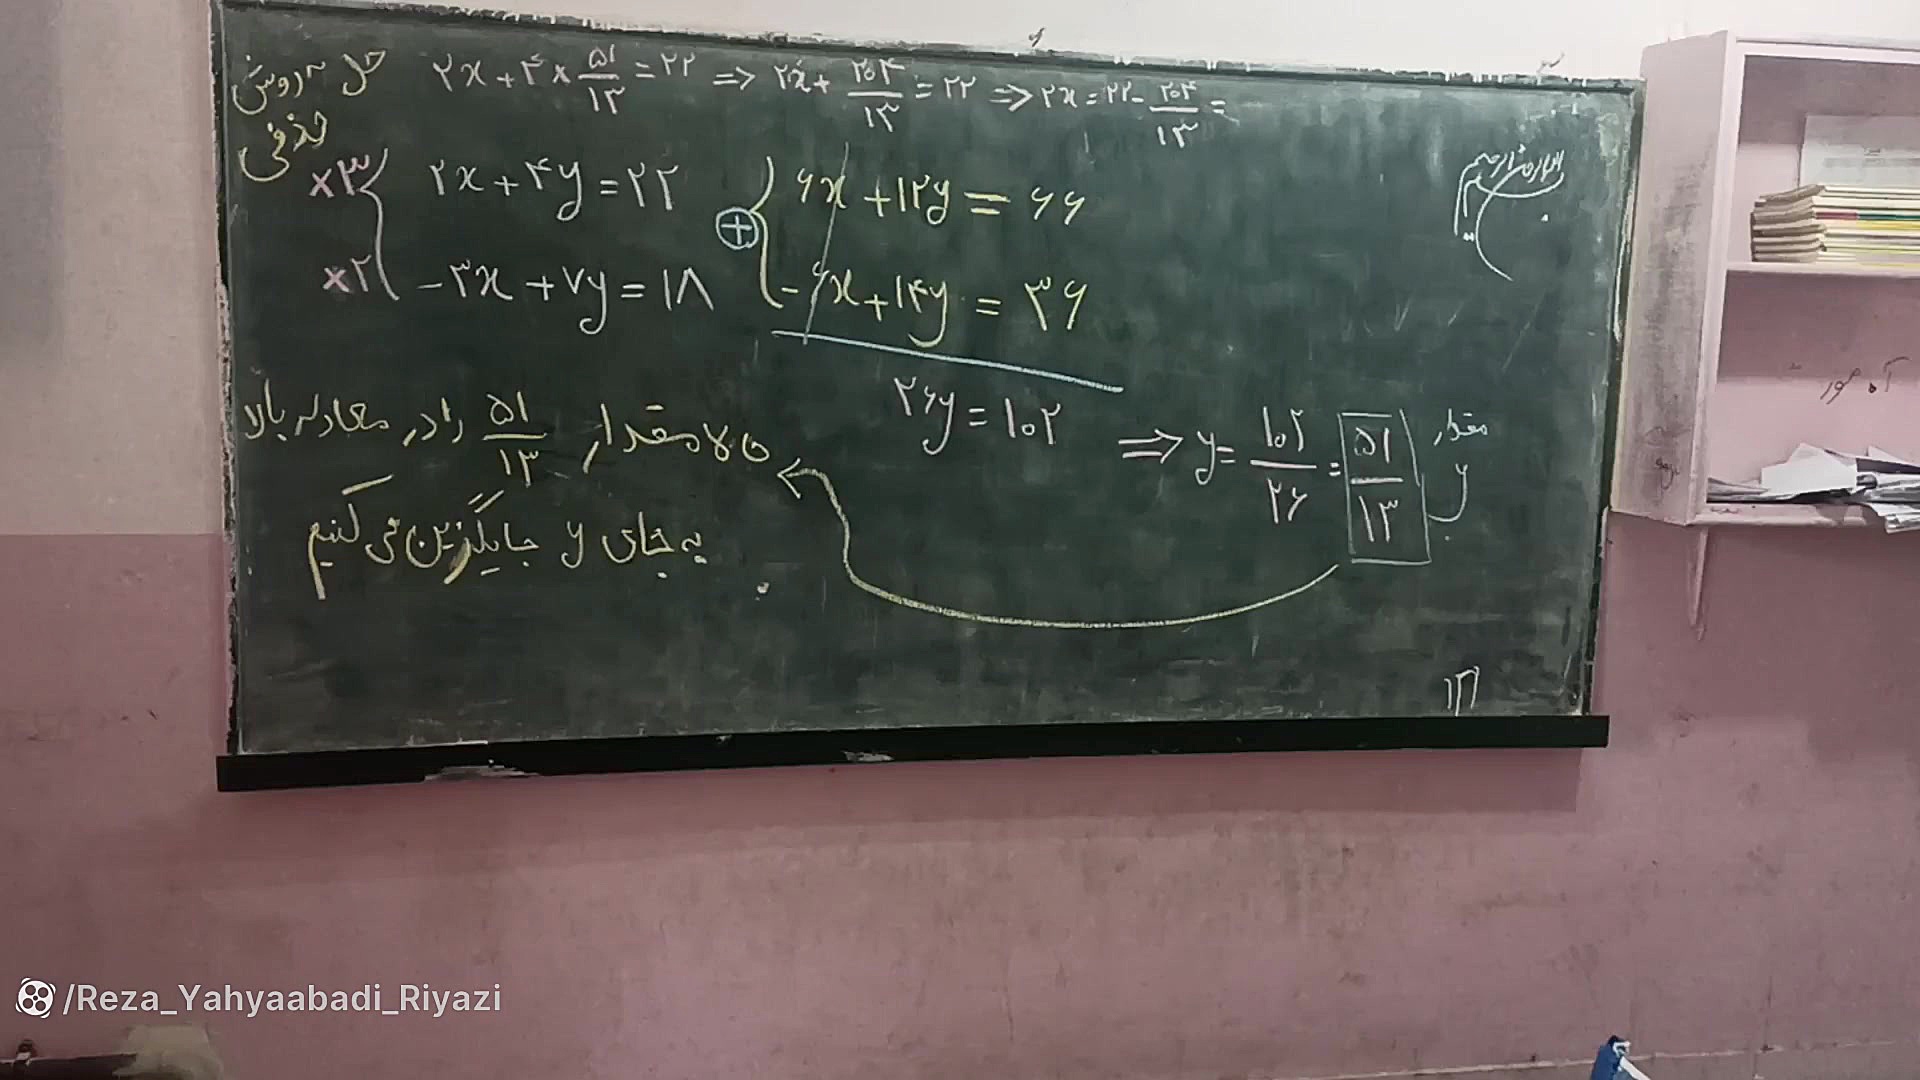 حل به روش
حذفی
۲x + ۴ × ۵۱/۱۳ = ۲۲ => ۲x + ۲۰۴/۱۳ = ۲۲ => ۲x = ۲۲ - ۲۰۴/۱۳ =
×۳ { ۲x + ۴y = ۲۲
×۲ - ۳x + ۷y = ۱۸
⊕ { ۶x + ۱۲y = ۶۶
- ۶x + ۱۴y = ۳۶
۲۶y = ۱۰۲ => y = ۱۰۲/۲۶ = ۵۱/۱۳
مقدار
y
حالا مقدار ۵۱/۱۳ را در معادله بالا
به جای y جایگزین می کنیم
/Reza_Yahyaabadi_Riyazi